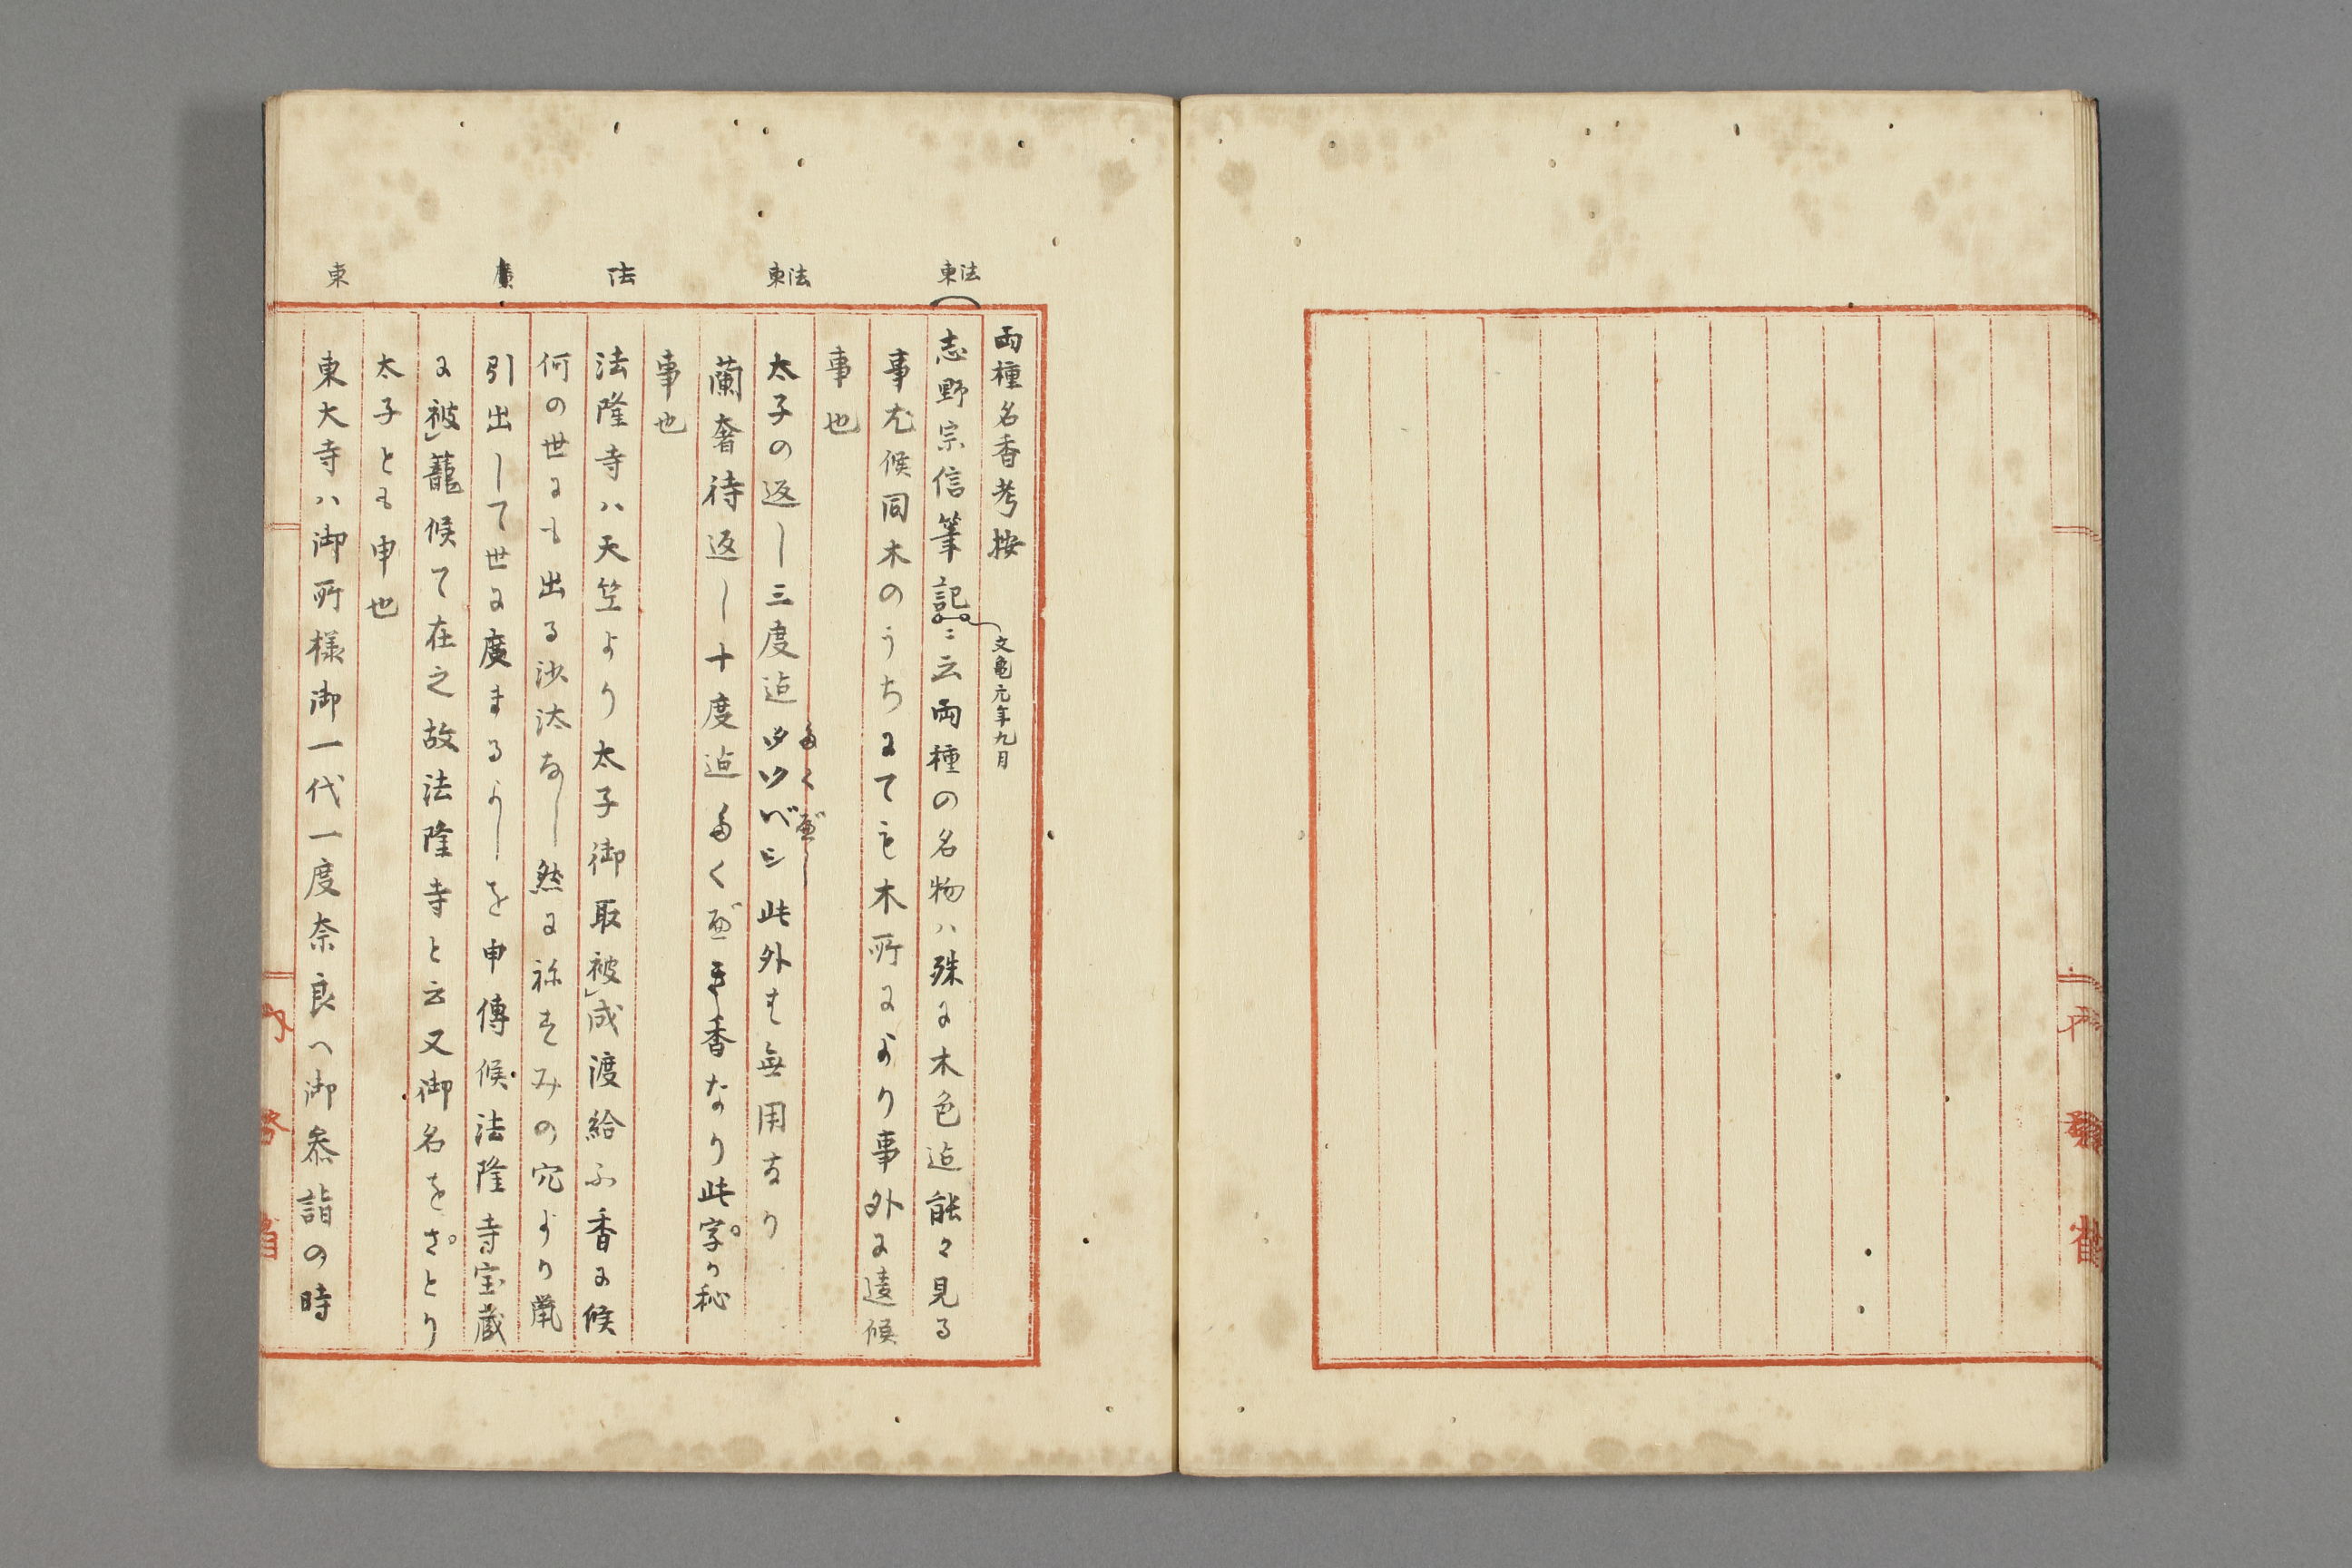 両種名香考按
文亀元年九月
法東
志野宗信筆記ニ云両種の名物ハ殊に木色迠能々見る
事尤候同木のうちにても木所により事外に遠候
事也
法東
太子の返し三度迠タクベシ此外は無用なり
多く遍し
蘭奢待返し十度迠多く遍き香なり此字ヲ秘
事也
法
法隆寺ハ天竺より太子御取被成渡給ふ香に候
何の世にも出る沙汰なし然に祢ずみの穴より鼠
引出して世に廣まるよしを申傳候法隆寺宝蔵
に被籠候て在之故法隆寺と云又御名をさとり
太子とも申也
東
東大寺ハ御所様御一代一度奈良へ御参詣の時
内務省